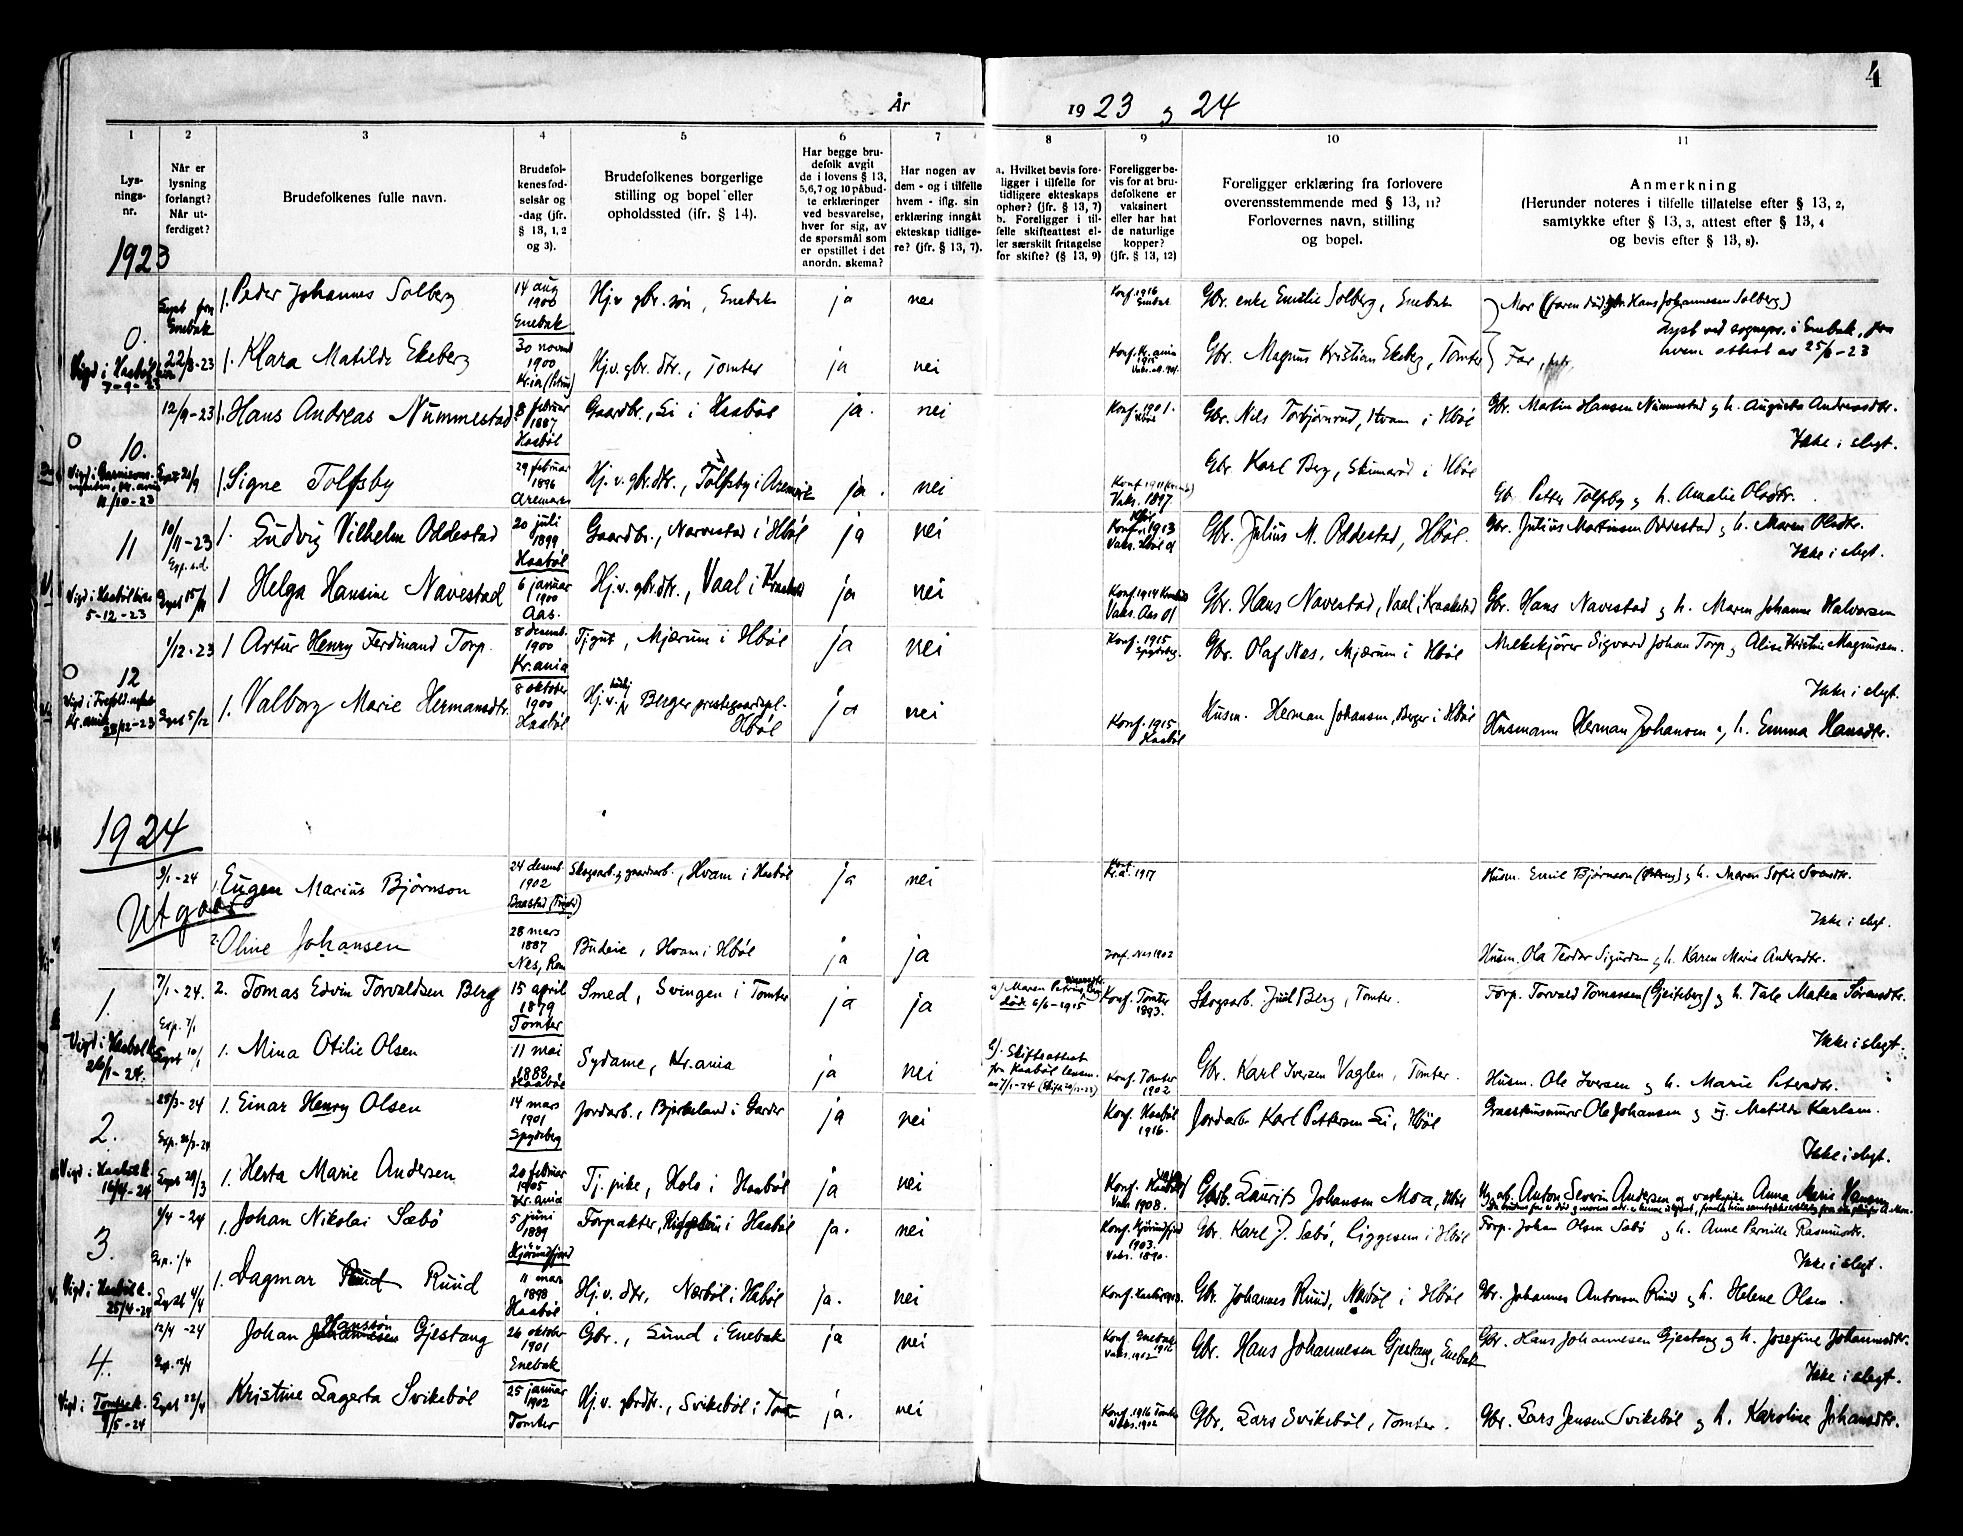 4
År 1923 og 24
1 2 3 4 5 6 7 8 9 10 11
Lys-
nings-
nr.
Når er
lysning
forlangt?
Når ut-
ferdiget?
Brudefolkenes fulle navn.
Brudefol-
kenes fød-
selsår og
-dag (jfr.
§ 13, 1, 2
og 3).
Brudefolkenes borgerlige
stilling og bopel eller
opholdssted (ifr. § 14).
Har begge bru-
defolk avgit
de i lovens § 13,
5,6,7 og 10 påbud-
te erklæringer
ved besvarelse,
hver for sig, av
de spørsmål som
er opstillet i det
anordn. skema?
Har nogen av
dem - og i tilfelle
hvem - iflg. sin
erklæring inngått
ekteskap tidlige-
re? (jfr. § 13, 7).
a. Hvilket bevis fore-
ligger i tilfelle for
tidligere ekteskaps
ophør? (jfr. § 13, 7)
b. Foreligger i til-
felle skifteattest el-
ler særskilt fritagelse
for skifte? (§ 13, 9)
Foreligger be-
vis for at bru-
defolkene er
vaksinert
eller har hat
de naturlige
kopper?
(jfr. § 13, 12)
Foreligger erklæring fra forlovere
overensstemmende med § 13, 11?
Forlovernes navn, stilling
og bopel.
Anmerkning
(Herunder noteres i tilfelle tillatelse efter § 13, 2,
samtykke efter § 13, 3, attest efter § 13, 4
og bevis efter § 13, 8).
1923
0.
Lyst fra
Enebak
22/8-23
7-9-23
1. Peder Johannes Solberg
14 aug
1900
Enebak
Hj.v. gbr. søn, Enebak
ja nei
Konf. 1916
Enebak
Gbr. enke Emilie Solberg, Enebak
Mor (faren død, gbr. Hans Johannesen Solberg)
Lyst ved sognepr. i Enebak, fra
hvem attest av 25/8-23
1. Klara Matilde Ekeberg
30 novemb
1900
Hj.v. gbr. dtr., Tomter
ja nei
Gbr. Magnus Kristian Ekeberg, Tomter
Far,
10.
12/9-23
11/10-23
1. Hans Andreas Nummestad
8 februar
1887
Haabøl
Gaardbr., Li i Haabøl
ja. nei
Konf. 1901.
Gbr. Nils Torbjørnrud, Hvam i Hbøl
Gbr. Martin Hansen Nummestad og h. Augusta Andreasdtr.
Ikke i slegt.
1. Signe Tolfsby
29 februar
1896
Aremark
Hj.v. gbr. dtr., Tolfsby i Aremark
ja. nei
Vaks. 1897
Gbr. Karl Berg, Skimarød i Hbøl
Gb. Petter Tolfsby og h. Amalie Olsdtr.
11
10/11-23
Exp. s.d.
Vigd i Haabøl kirke
5-12-23
Lyst 15/11
1. Ludvig Vilhelm Oddestad
20 juli
1899
Haabøl
Gaardbr., Navestad i Hbøl
ja nei
Konf. 1913
Gbr. Julius M. Oddestad, Hbøl.
Gbr. Julius Martinsen Oddestad og h. Maren Olsdtr.
Ikke i slegt.
1 Helga Hansine Navestad
6 januar
1900
Aas.
Hj.v. gbr. dtr., Vaal i Kraakstad
ja nei
Konf. 1914 Kraakstad
Vaks. Aas 01
Gbr. Hans Navestad, Vaal i Kraakstad
Gbr. Hans Navestad og h. Maren Johanne Halvorsen
12
1/12-23
Lyst 5/12
28/12-23
1 Artur Henry Ferdinand Torp.
8 desemb.
1900
Kr.ania
Tj.gut, Mjærum i Hbøl
ja nei
Konf. 1915
Spydeberg.
Gbr. Olaf Nes, Mjærum i Hbøl
Melkekjører Sigvard Johan Torp og Alise Kristine Magnussen.
Ikke i slegt.
1. Valborg Marie Hermansdtr.
8 oktober
1900
Haabøl
Hj.v. Berger prestegaardspl.
Hbøl
ja nei
Konf. 1915
Haabøl
Husm. Herman Johansen, Berger i Hbøl
Husmann Herman Johansen og h. Emma Hansdtr.
1924
Utgaar
3/1-24
1. Eugen Marius Bjørnson
24 desemb.
1902
Skogsarb. og gaardsarb., Hvam i Haabøl
ja nei
Konf.
Kr.a. 1917
Husm. Emil Bjørnson og h. Maren Sofie Svendtr.
Ikke i slegt.
2. Oline Johansen
28 mars
1887
Nes, Rom
Budeie, Hvam i Hbøl
ja ja
Konf. Nes 1902
Husm. Ola Teodor Sigurdsen og h. Karen Marie Andersdtr.
1.
7/1-24.
Exp. 7/1
Lyst 10/1
Vigd i Haabøl k.
26/1-24.
2. Tomas Edvin Torvaldsen Berg
15 april
1879
Tomter
Smed, Svingen i Tomter
ja ja
død 6/6-1915
Konf. Tomter
1893.
Skogsarb. Juul Berg, Tomter.
Forp. Torvald Tomassen (Gjeiteberg) og h. Tale Matea Sørensdtr.
Ikke i slegt.
1. Mina Otilie Olsen
11 mai
1888
Haabøl
Sydame, Kr.ania
ja nei
b). Skifteattest
fra Haabøl lensm.
av 7/1-24
Konf. Tomter
1902
Gbr. Karl Iversen Vaglen, Tomter.
Husm. Ole Iversen og h. Marie Petersdtr.
2.
28/3-24
Exp. 28/3-24
Lyst 29/3
Vigd i Haabøl k.
16/4-24
1. Einar Henry Olsen
14 mars
1901
Spydeberg
Jordarb., Bjerkeland i Garder
ja nei
Konf. Haabøl
1916.
Jordarb. Karl Pettersen Li, Hbøl
Ole Johansen og Matilde Karlsen.
Ikke i slegt.
1. Herta Marie Andersen
20 februar
1905
Kr.ania
Tj. pike, Holo i Haabøl
ja nei
Vaks. 1908.
Laurits Johansen Moa, Hbøl
Anton Severin Andersen og Anna Marie Hansen
3.
1/4-24
Exp. 1/4
Lyst 4/4
Vigd i Haabøl k.
25/4-24
1. Johan Nikolai Sæbø
5 juni
1889
Hjørundfjord
Forpakter, Riggesun i Haabøl
ja. nei
Konf. Hjørundfjord
1903.
Vaks. 1890.
Gbr. Karl J. Sæbø, Liggesen i Hbøl
Forp. Johan Olsen Sæbø og h. Anne Pernille Rasmusdtr.
Ikke i slegt.
1. Dagmar Ruud Ruud
11 mars
1898
Haabøl
Hj.v. dtr., Nærbøl i Habøl
ja. nei
Gbr. Johannes Ruud, Nærbøl i Hbøl
Gbr. Johannes Antonsen Ruud og h. Helene Olsen.
4.
12/4-24
Exp. 12/4
Lyst 22/4
Vigd i Tomter k.
9/5-24
Johan Johannesen Hanssøn Gjestang
26 oktobr
1901
Enebak
Gbr., Lund i Enebak
ja nei
Konf. Enebak
1916
Vaks. 1902
Gbr. Hans Johannesen Gjestang, Enebak
Gbr. Hans Johannesen Gjestang og h. Josefine Johannesdtr.
Ikke i slegt.
Kristine Lagerta Svikebøl
25 januar
1902
Tomter
Hj.v. gbrdtr., Svikebøl i Tomter
ja. nei
Konf. 1916 Tomter
Vaks. 1902
Gbr. Lars Svikebøl, Tomter.
Gbr. Lars Jensen Svikebøl og h. Karoline Johansdtr.